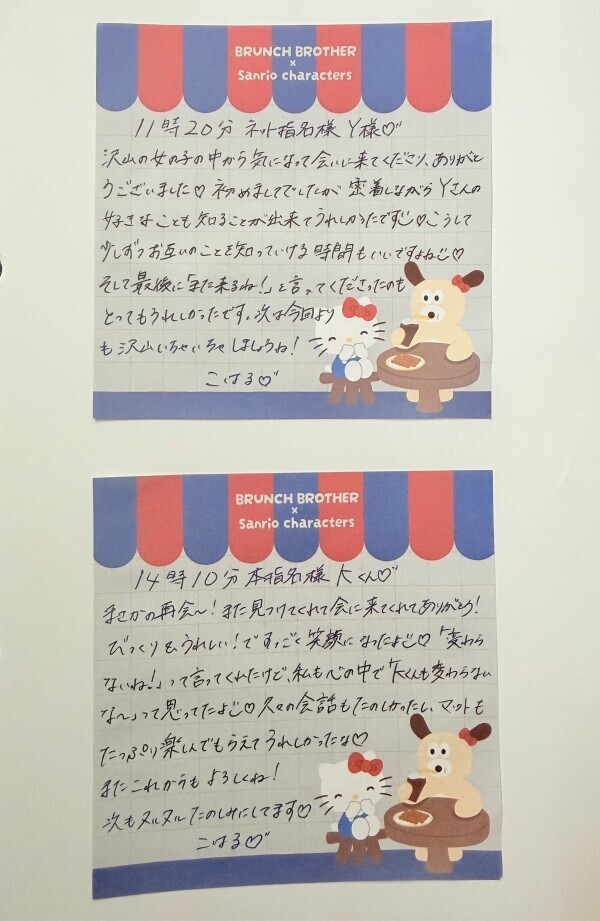 BRUNCH BROTHER
×
Sanrio characters
11時20分 ネット指名様 Y様♡
沢山の女の子の中から気になって会いに来てくださり、ありがと
うございました♡ 初めましてでしたが 密着しながらYさんの
好きなことも知ることが出来てうれしかったです♡こうして
少しずつお互いのことを知っていける時間もいいですよね♡
そして最後に「また来るね!」と言ってくださったのも
とってもうれしかったです。次は今回より
も沢山いちゃいちゃしましょうね!
こはる♡
BRUNCH BROTHER
×
Sanrio characters
14時10分本指名様 Kくん♡
まさかの再会〜!また見つけてくれて会いに来てくれてありがとう!
びっくり&うれしい!ですっごく笑顔になったよ♡「変わら
ないね!」って言ってくれたけど、私も心の中で「Kくんも変わらない
な〜」って思ってたよ♡久々の会話もたのしかったし、マットも
たっぷり楽しんでもらえてうれしかったな♡
またこれからもよろしくね!
次もヌルヌルたのしみにしてます♡
こはる♡